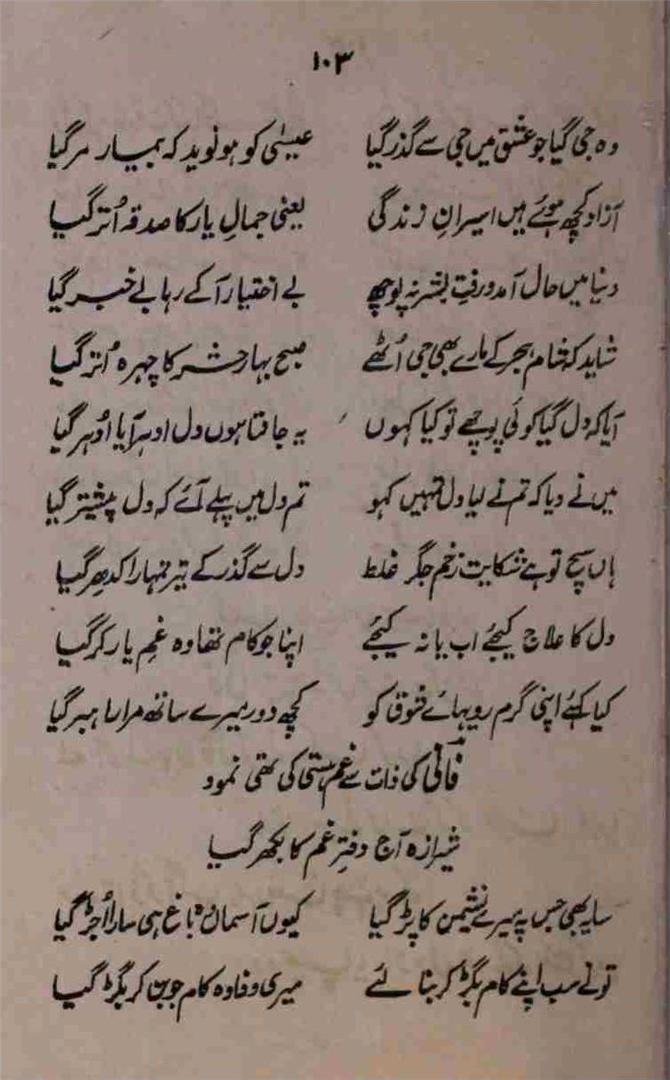 ۱۰۳
وہ جی گیا جو عشق میں جی سے گذر گیا عیسیٰ کو ہو نوید کہ بیمار مر گیا
آزاد کچھ ہوئے ہیں اسیرانِ زندگی یعنی جمالِ یار کا صدقہ اُتر گیا
دنیا میں حال آمد و رفتِ بشر نہ پوچھ بے اختیار آ کے رہا بے خبر گیا
شاید کہ شام ہجر کے مارے بھی جی اُٹھے صبح بہار حشر کا چہرہ اُتر گیا
آیا کہ دل گیا کوئی پوچھے تو کیا کہوں یہ جانتا ہوں دل ادہر آیا اُدہر گیا
میں نے دیا کہ تم نے لیا دل تمہیں کہو تم دل میں پہلے آئے کہ دل پیشتر گیا
ہاں سچ تو ہے شکایت زخم جگر غلط دل سے گذر کے تیر تمہارا کدھر گیا
دل کا علاج کیجئے اب یا نہ کیجئے اپنا جو کام تھا وہ غمِ یار کر گیا
کیا کہئے اپنی گرم رویہائے شوق کو کچھ دور میرے ساتھ مرا راہبر گیا
فانی کی ذات سے غم ہستی کی تھی نمود
شیرازہ آج دفترِ غم کا بکھر گیا
سایہ بھی جس پہ میرے نشیمن کا پڑ گیا کیوں آسمان وہ باغ ہی سارا اُجڑ گیا
تو نے سب اپنے کام بگڑ کر بنا لئے میری وفا وہ کام جو بن کر بگڑ گیا